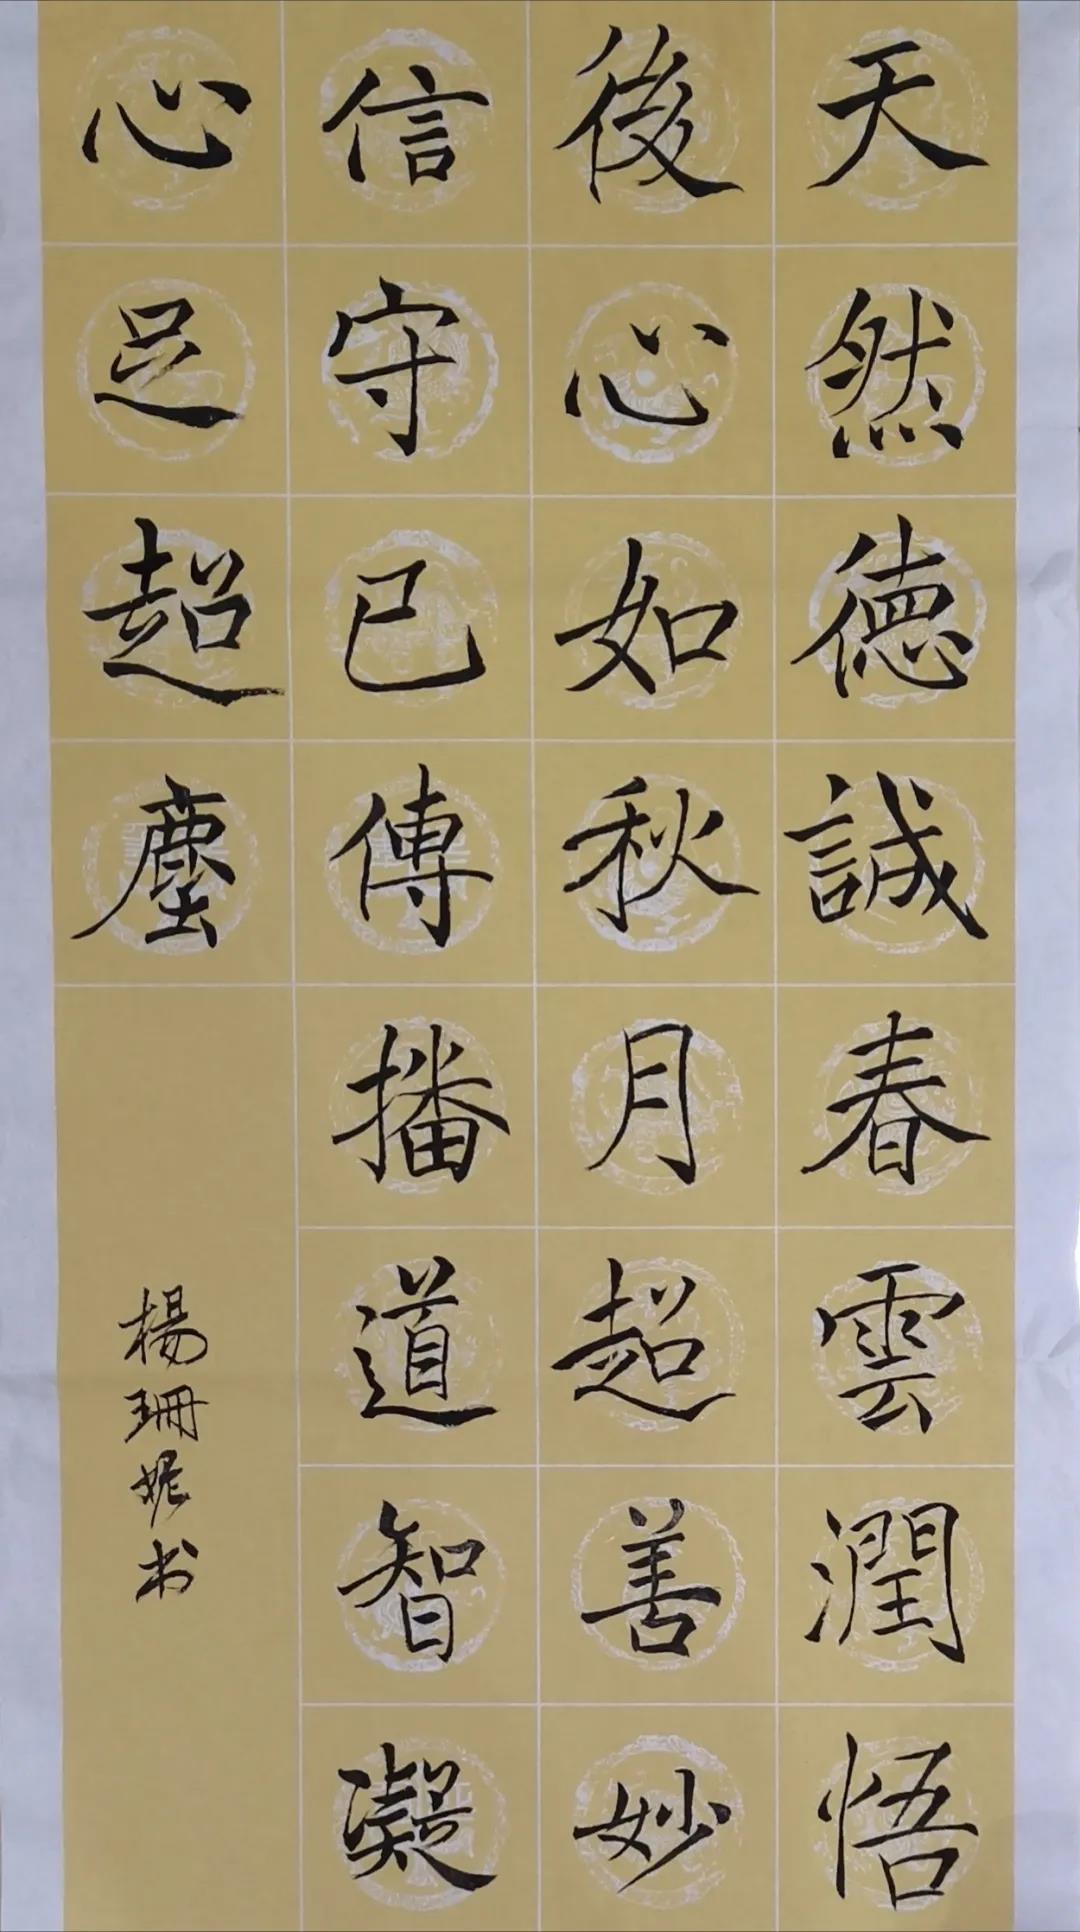 天然德誠春雲潤悟
後心如秋月超善妙
信守已傳播道智凝
心足超塵
楊珊妮书